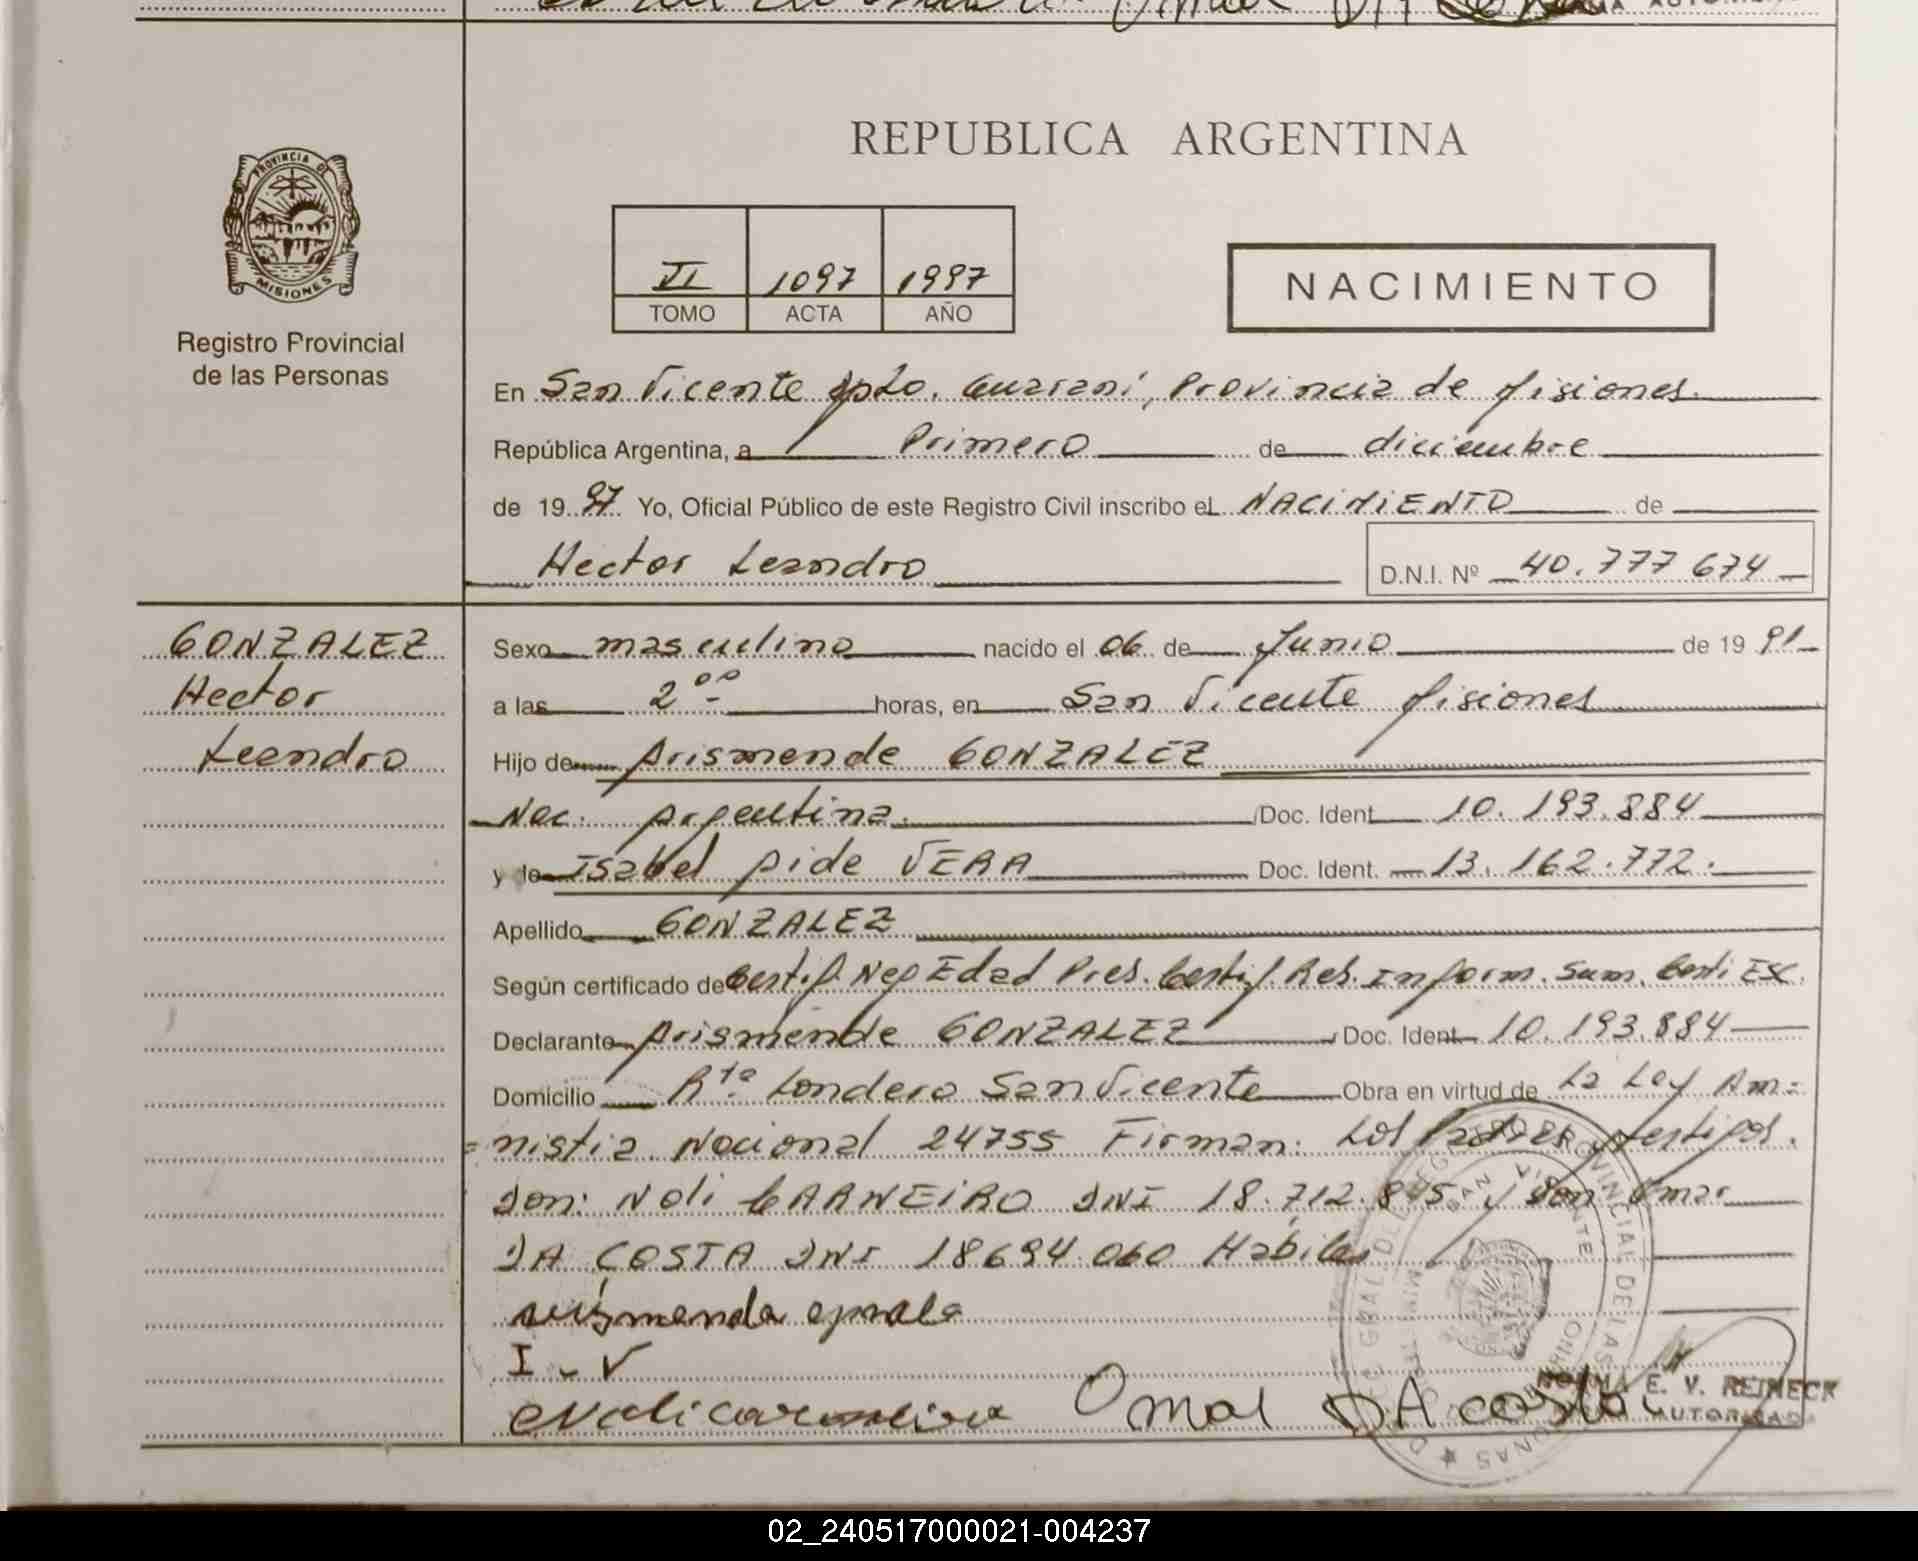 REPUBLICA ARGENTINA
PROVINCIA DE
MISIONES
Registro Provincial
de las Personas
VI 1097 1997
TOMO ACTA AÑO
NACIMIENTO
En San Vicente Dpto. Guaraní, Provincia de Misiones.
República Argentina, a Primero de diciembre
de 19 97 Yo, Oficial Público de este Registro Civil inscribo el NACIMIENTO de
Hector Leandro D.N.I. Nº 40.777 674
GONZALEZ
Hector
Leandro
Sexo masculino nacido el 06 de Junio de 19 91
a las 2°° horas, en San Vicente Misiones
Hijo de Arismende GONZALEZ
Nac. Argentina. Doc. Ident 10.193.884
y de Isabel Aide VERA Doc. Ident. 13.162.772.
Apellido GONZALEZ
Según certificado de Certif. Neg Edad Pres. Certif. Res. Inform. Sum. Certi Esc.
Declarante Arismende GONZALEZ Doc. Ident 10.193.884
Domicilio Rta. Londero San Vicente Obra en virtud de La Ley Am=
=nistia Nacional 24755 Firman. Los Padres y testigos.
Don: Noli CARNEIRO DNI 18.712.845 y Don Omar
DA COSTA DNI 18694.060 Habiles
I - V
Omar DA costa
NORMA E. V. REINECK
AUTORIZADA
SAN VICENTE
02_240517000021-004237